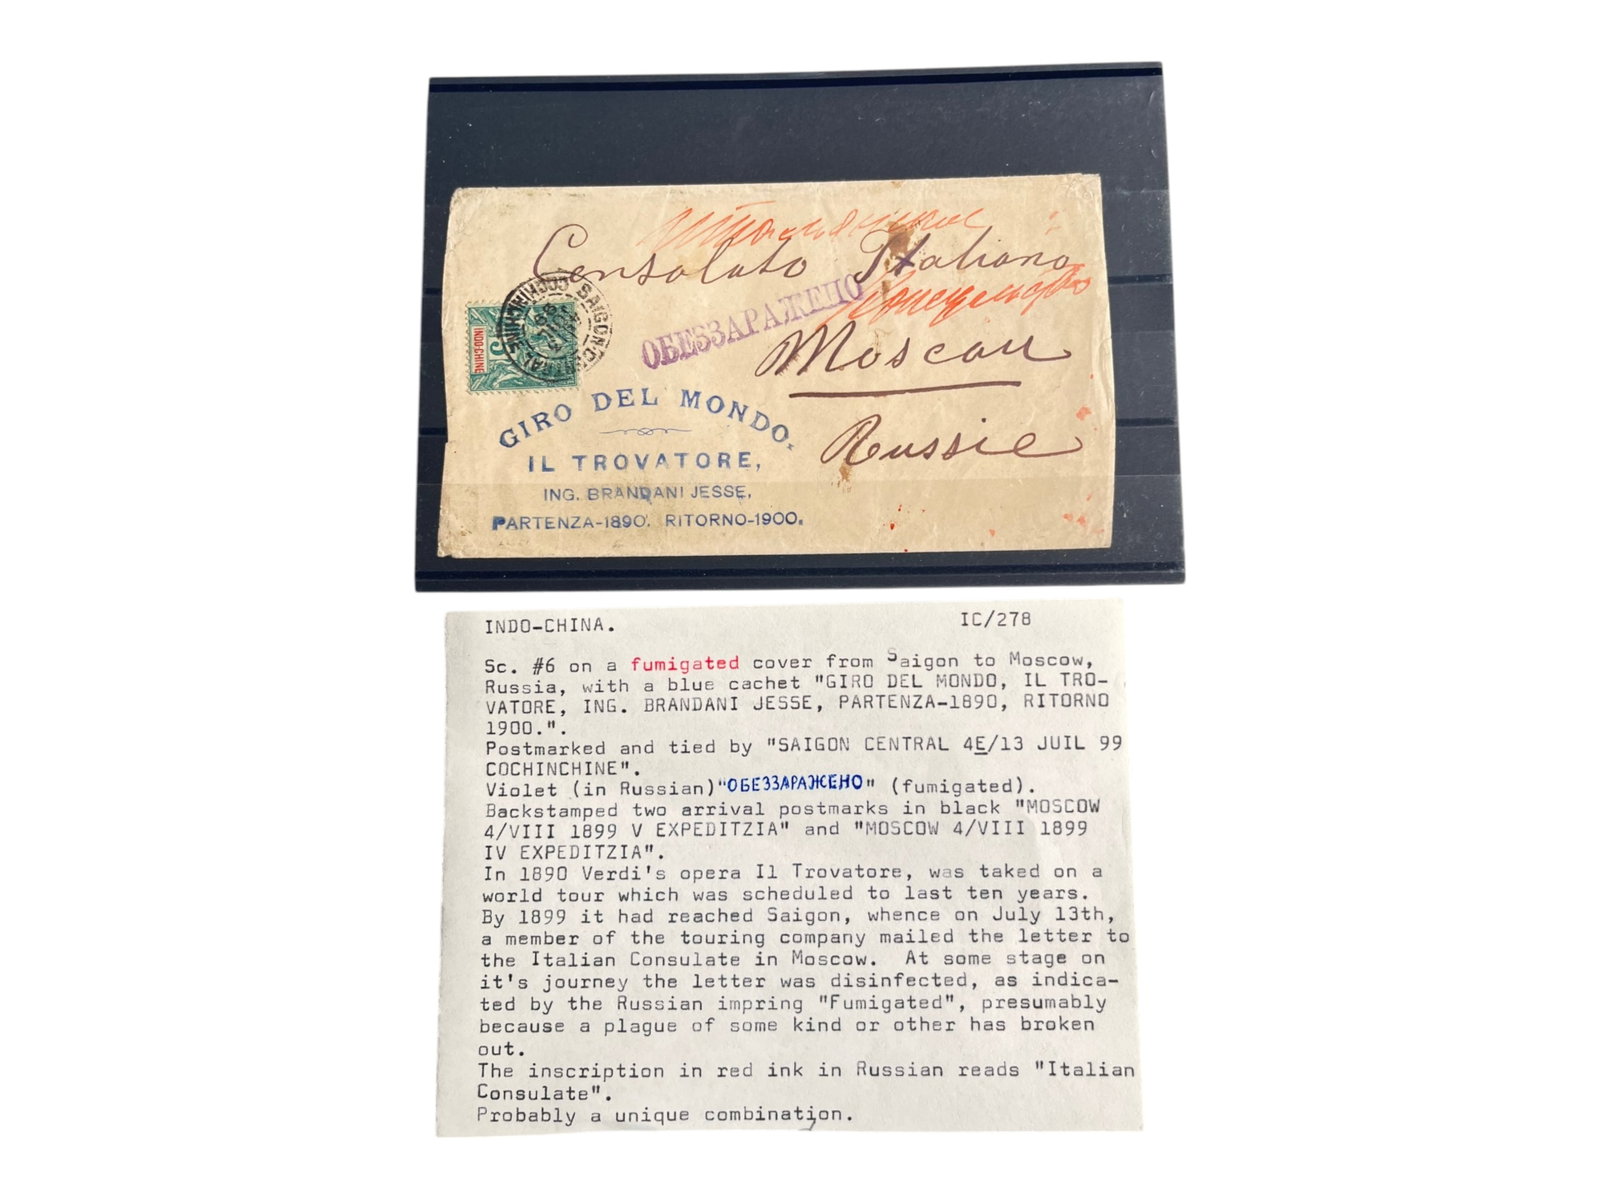 Итальянское
Consolato Italiano
Консульство
ОБЕЗЗАРАЖЕНО
Moscou
Russie
SAIGON-CENTRAL
COCHINCHINE
INDO-CHINE
5
GIRO DEL MONDO.
IL TROVATORE,
ING. BRANDANI JESSE,
PARTENZA-1890. RITORNO-1900.
INDO-CHINA. IC/278
Sc. #6 on a fumigated cover from Saigon to Moscow,
Russia, with a blue cachet "GIRO DEL MONDO, IL TRO-
VATORE, ING. BRANDANI JESSE, PARTENZA-1890, RITORNO
1900.".
Postmarked and tied by "SAIGON CENTRAL 4E/13 JUIL 99
COCHINCHINE".
Violet (in Russian)"ОБЕЗЗАРАЖЕНО" (fumigated).
Backstamped two arrival postmarks in black "MOSCOW
4/VIII 1899 V EXPEDITZIA" and "MOSCOW 4/VIII 1899
IV EXPEDITZIA".
In 1890 Verdi's opera Il Trovatore, was taked on a
world tour which was scheduled to last ten years.
By 1899 it had reached Saigon, whence on July 13th,
a member of the touring company mailed the letter to
the Italian Consulate in Moscow. At some stage on
it's journey the letter was disinfected, as indica-
ted by the Russian impring "Fumigated", presumably
because a plague of some kind or other has broken
out.
The inscription in red ink in Russian reads "Italian
Consulate".
Probably a unique combination.